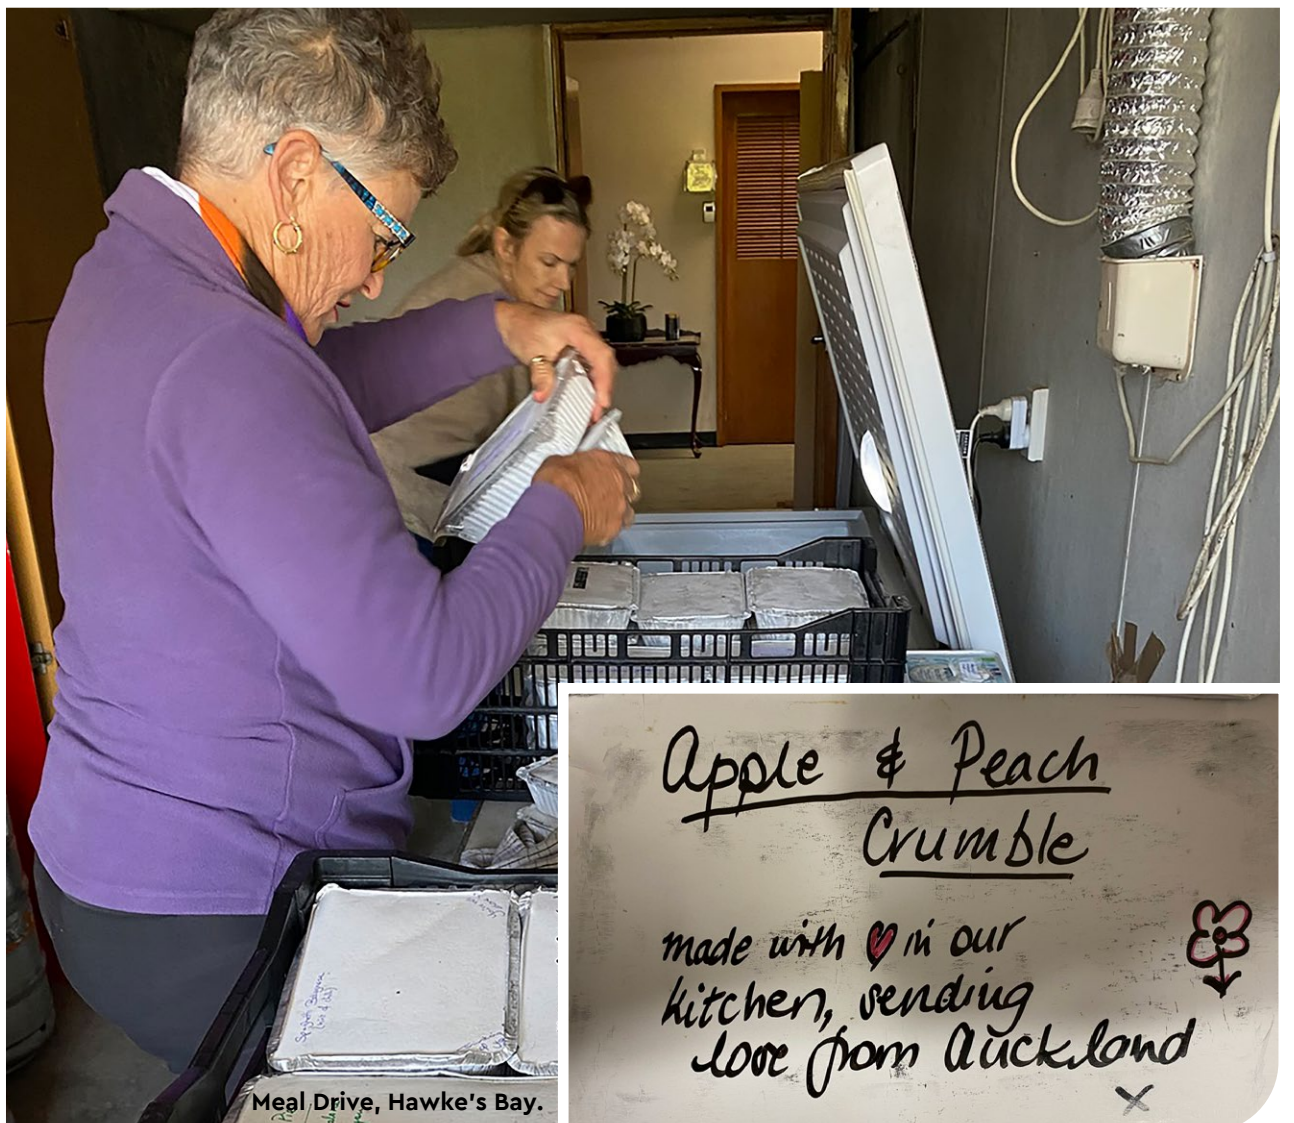 Spaghetti Bolognese
Meal Drive, Hawke's Bay.
Apple & Peach
Crumble
made with ❤ in our
kitchen, sending
love from Auckland
x